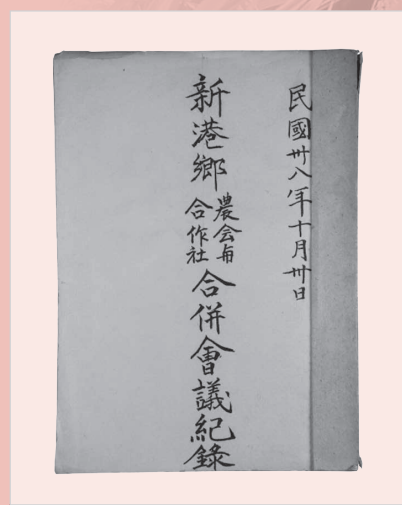 民國卅八年十月卅日
新港鄉農会與合作社合併會議紀錄